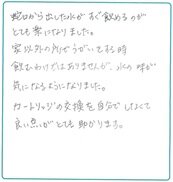 蛇口から出した水がすぐ飲めるのが
とても楽になりました。
家以外の所でうがいをする時
飲むわけではありませんが、水の味が
気になるようになりました。
カートリッジの交換を自分でしなくて
良い点がとても助かります。